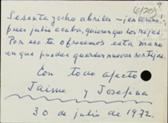 Sesenta y ocho abriles — ¡enteros!
pues julio acaba, querenga los rejas.
Por eso te ofrecemos esta mano
en que puedas guardar nuevas sortijas.
Con todo afecto
Jaime y Josefina
30 de julio de 1972.